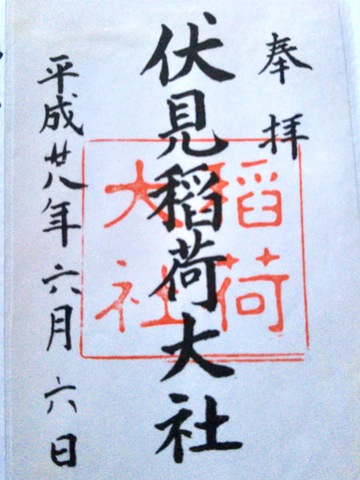 奉拝
伏見稲荷大社
稲荷
大社
平成廿八年六月六日